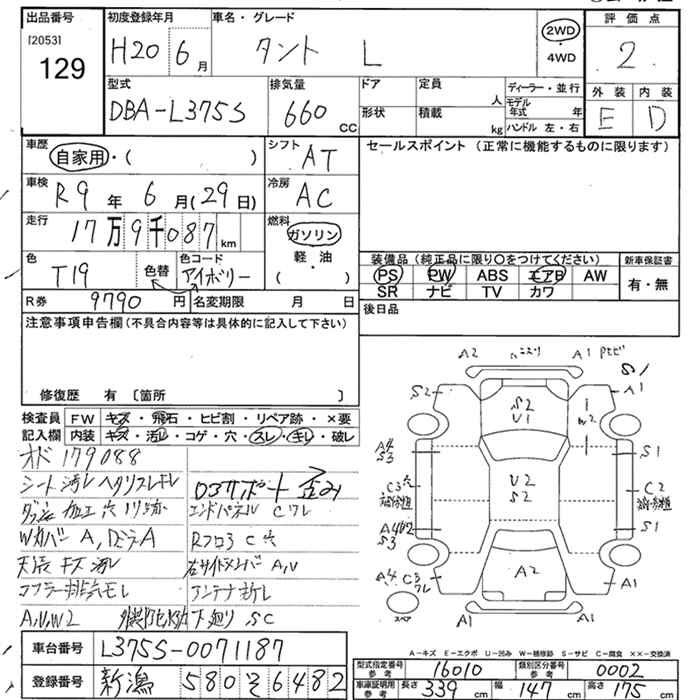 出品番号
[2053]
129
初度登録年月
H20 6月
車名・グレード
タント L
2WD
・
4WD
評価点
2
型式
DBA-L375S
排気量
660 CC
ドア
定員
人
形状
積載
kg
ディーラー・並行
モデル年式 年
ハンドル 左・右
外装 内装
E D
車歴
自家用・( )
シフト
AT
セールスポイント (正常に機能するものに限ります)
車検
R9年 6月(29日)
冷房
AC
走行
17万9千087km
燃料
ガソリン
軽・油
( )
色
T19
色替
色コード
アイボリー
装備品 (純正品に限り〇をつけてください)
新車保証書
PS PW ABS エアB AW
SR ナビ TV カワ
有・無
R券 9790円
名変期限 月 日
後日品
注意事項申告欄 (不具合内容等は具体的に記入して下さい)
修復歴 有 〔箇所 〕
検査員
記入欄
FW キズ・飛石・ヒビ割・リペア跡・×要
内装 キズ・汚レ・コゲ・穴・スレ・キレ・破レ
オド179088
シート汚レ ヘタリスレキレ
ダッシュ加工穴
Wカバー A,
天張キズ汚レ
マフラー排気モレ
A,U,W2
ロアサポート歪み
エンドパネル Cワレ
Rフロア C穴
右サイドメンバーA,U
アンテナ折レ
下廻りSC
A2
A1
S1
S2
A1
S2
U1
W2
A4
S3
S1
C3穴
U2
S2
C2
S3
S1
A2
A4 C3
ワレ
A1
スペア
A1
A1
A-キズ E-エクボ U-凹み W-補修跡 S-サビ C-腐食 ××-交換済
車台番号
L375S-0071187
登録番号
新潟 580 そ 6482
型式指定番号
参考
16010
類別区分番号
参考
0002
車庫証明用
参考
長さ 339cm 幅 147cm 高さ 175cm